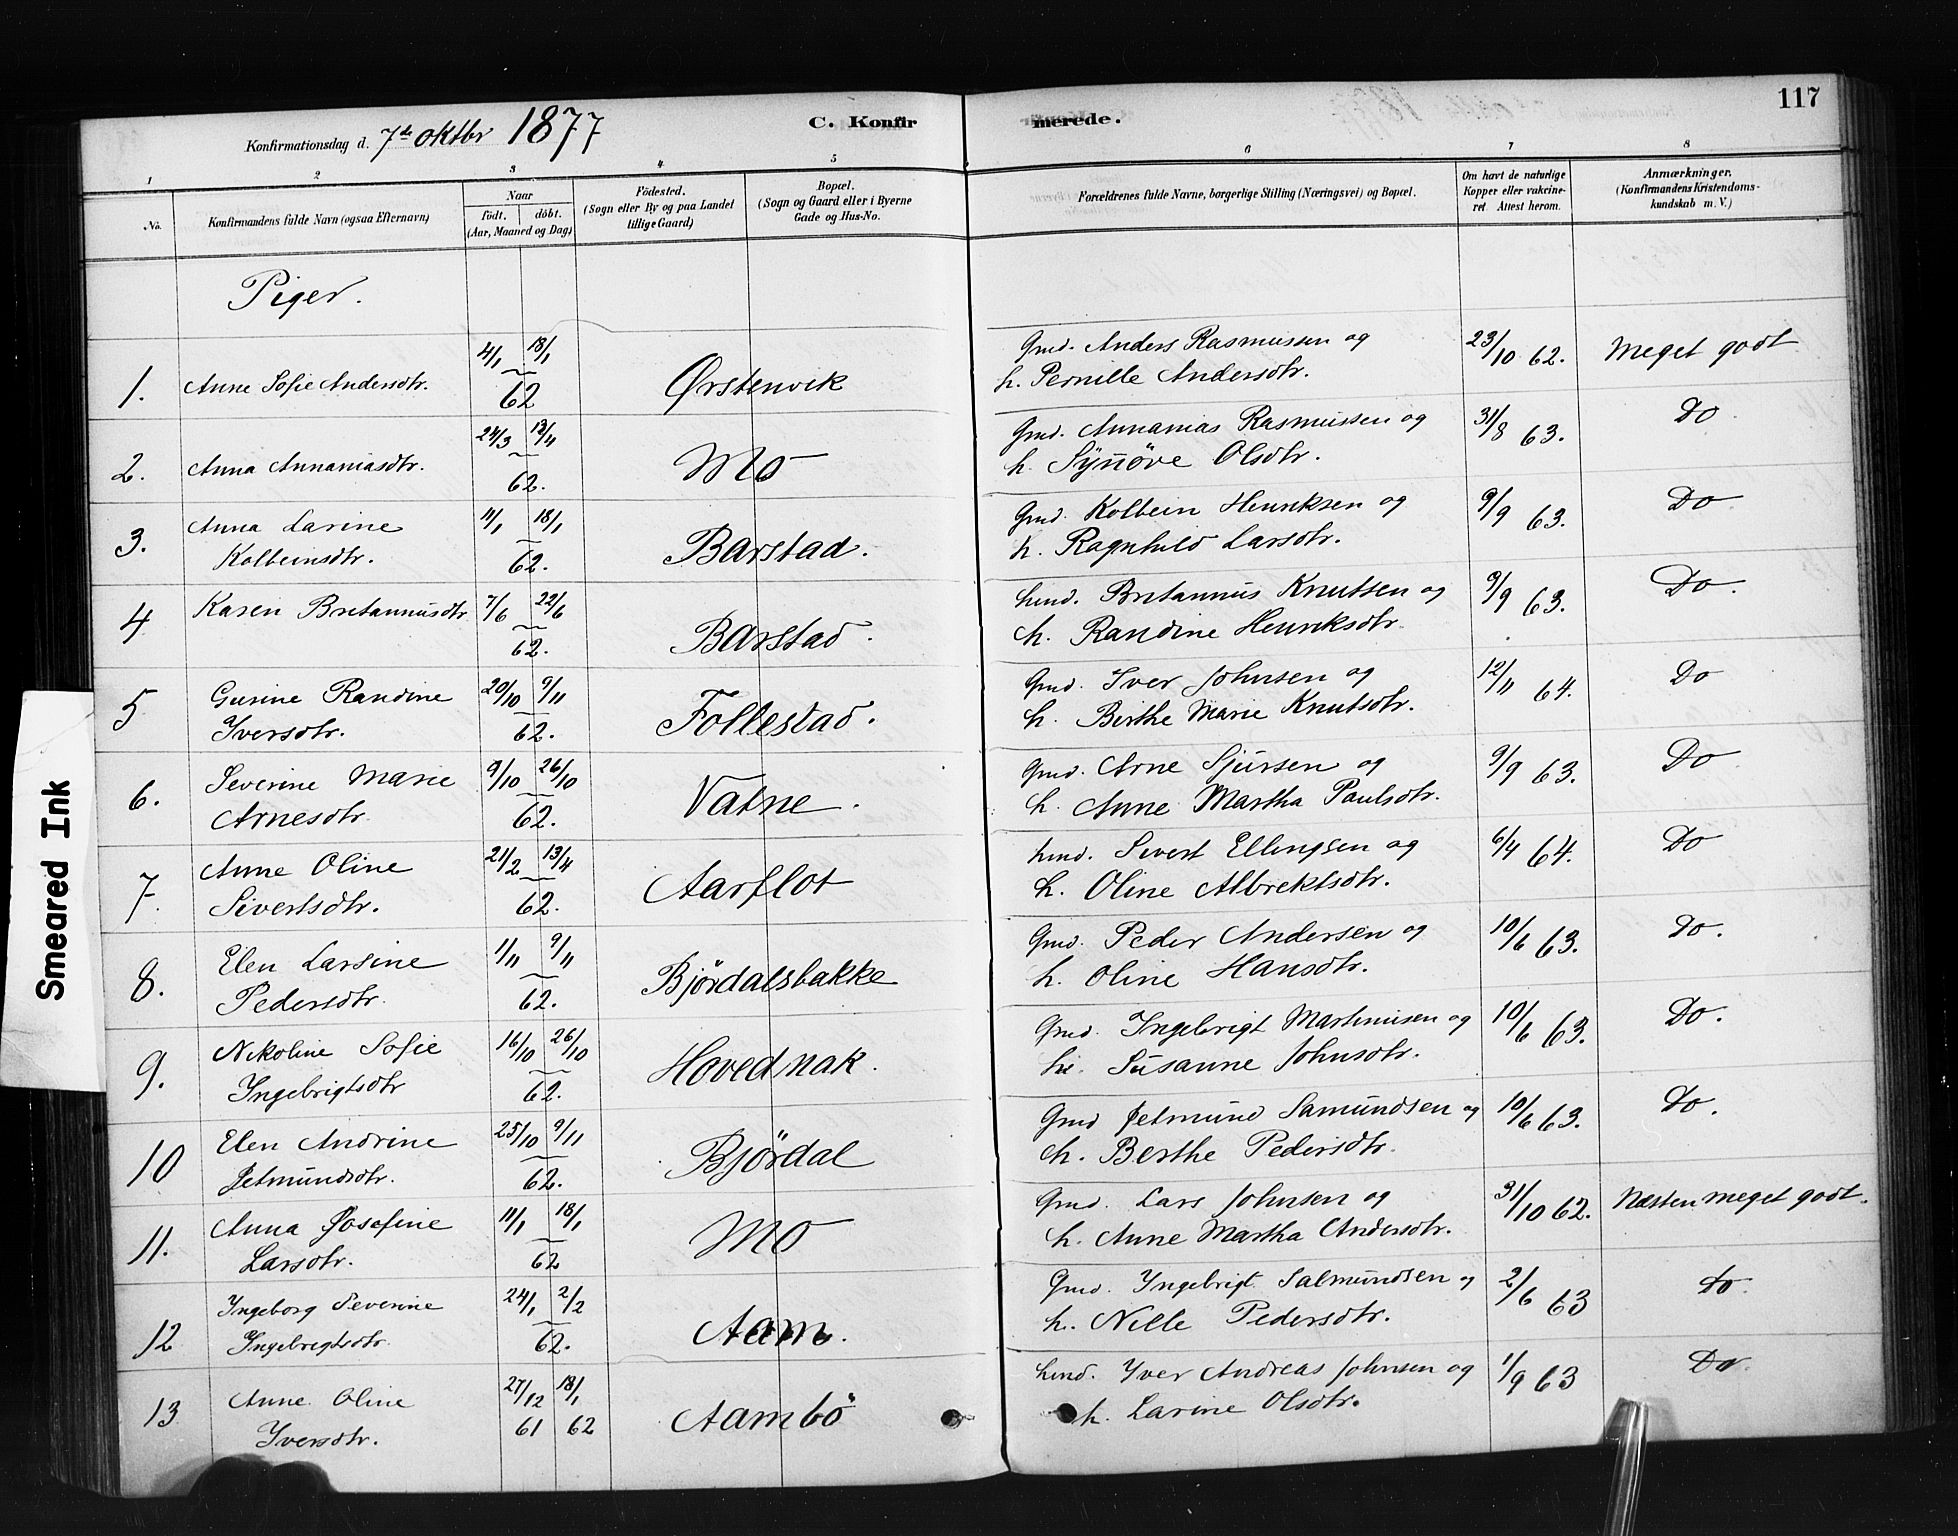 117
Konfirmationsdag d. 7de oktbr 1877
C. Konfirmerede.
1 2 3 4 5 6 7 8
No.
Konfirmandens fulde Navn (ogsaa Efternavn)
Naar
födt. döbt.
(Aar, Maaned og Dag)
Födested.
(Sogn eller By og paa Landet
tillige Gaard)
Bopæl.
(Sogn og Gaard eller i Byerne
Gade og Hus-No.
Forældrenes fulde Navne, borgerlige Stilling (Næringsvei) og Bopæl.
Om havt de naturlige
Kopper eller vakcine-
ret Attest herom.
Anmærkninger.
(Konfirmandens Kristendoms-
kundskab m. V.)
Piger.
1. Anne Sofie Andersdtr. 4/1 18/1 62 Ørstenvik Gmd. Anders Rasmussen og
h. Pernille Andersdtr. 23/10 62. Meget godt
2. Anna Annaniasdtr. 24/3 13/4 62. Mo Gmd. Annanias Rasmussen og
h. Synöve Olsdtr. 31/8 63. Do
3. Anna Larine
Kolbeinsdtr. 11/1 18/1 62. Barstad. Gmd. Kolbein Henriksen og
h. Ragnhild Larsdtr. 9/9 63. Do
4 Karen Bretannusdtr 7/6 22/6 62. Barstad. hmd. Bretannus Knutsen og
h. Randine Henriksdtr. 9/9 63. Do.
5 Gurine Randine
Iversdtr. 20/10 9/11 62. Follestad. Gmd. Iver Johnsen og
h. Birthe Marie Knutsdtr. 12/11 64. Do
6. Severine Marie
Arnesdtr. 9/10 26/10 62. Vatne. Gmd. Arne Sjursen og
h. Anne Martha Paulsdtr. 9/9 63. Do
7. Anne Oline
Sivertsdtr. 21/2 13/4 62. Aarflot hmd. Sivert Ellingsen og
h. Oline Albrektsdtr. 6/4 64. Do
8. Elen Larsine
Pedersdtr. 1/11 9/11 62. Björdalsbakke Gmd. Peder Andersen og
h. Oline Hansdtr. 10/6 63. Do.
9. Nikoline Sofie
Ingebrigtsdtr 16/10 26/10 62. Hovednak. Gmd. Ingebrigt Martinusen og
h. Susanne Johnsdtr. 10/6 63. Do.
10 Elen Andrine
Jetmundsdtr. 25/10 9/11 62. Björdal Gmd Jetmund Samundsen og
h. Berthe Pedersdtr. 10/6 63. Do.
11. Anna Josefine
Larsdtr. 11/1 18/1 62 Mo Gmd. Lars Johnsen og
h. Anne Martha Andersdtr. 31/10 62. Næsten meget godt.
12 Ingeborg Severine
Ingebrigtsdtr. 24/1 2/2 62. Aam. Gmd. Ingebrigt Salmundsen og
h. Nille Pedersdtr. 2/6 63 do.
13 Anne Oline
Iversdtr. 27/12 61 18/1 62 Aambö hmd. Iver Andreas Johnsen og
h. Larine Olsdtr. 1/9 63 Do.
Smeared Ink